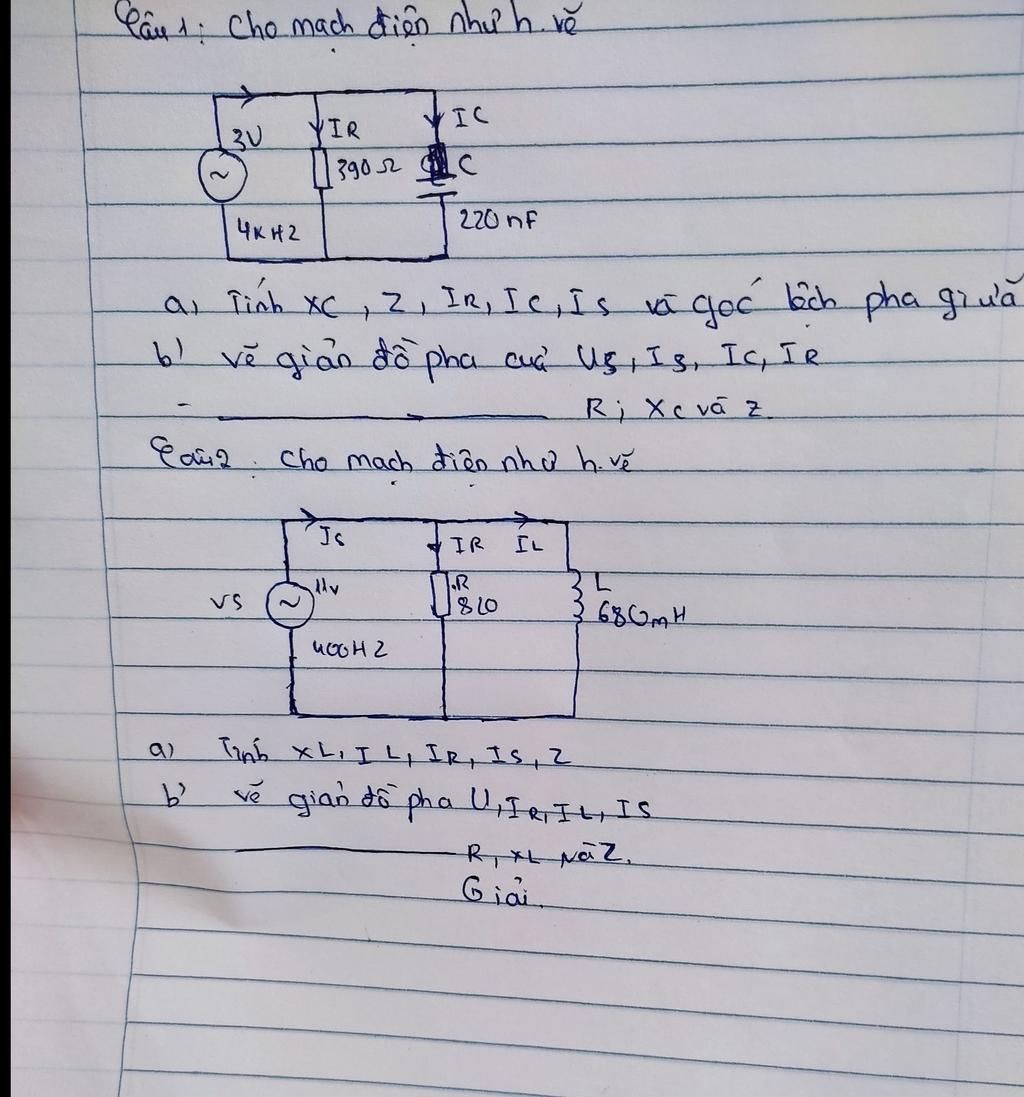 Câu 1: Cho mạch điện như h. vẽ
3V
IR
IC
390Ω
C
4KHZ
220nF
a, Tính XC, Z, IR, IC, IS và góc lệch pha giữa
b' vẽ giản đồ pha cuả US, IS, IC, IR
- R; XC và Z.
Câu 2. Cho mạch điện như h. vẽ
IS
IR IL
VS
R
L
680mH
400HZ
a) Tính XL, IL, IR, IS, Z
b' vẽ giản đồ pha U, IR, IL, IS
R, XL và Z.
Giải.